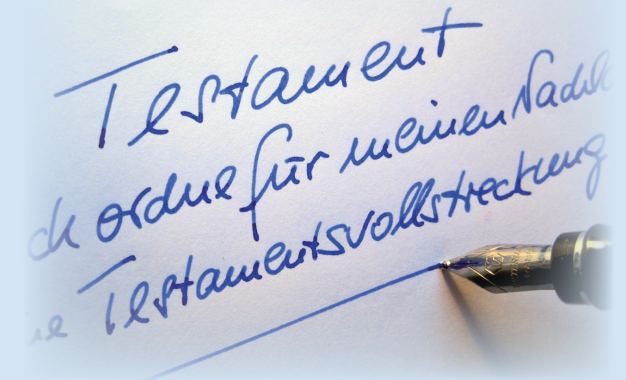 Testament
ch ordne für meinen Nachla
ne Testamentsvollstreckung